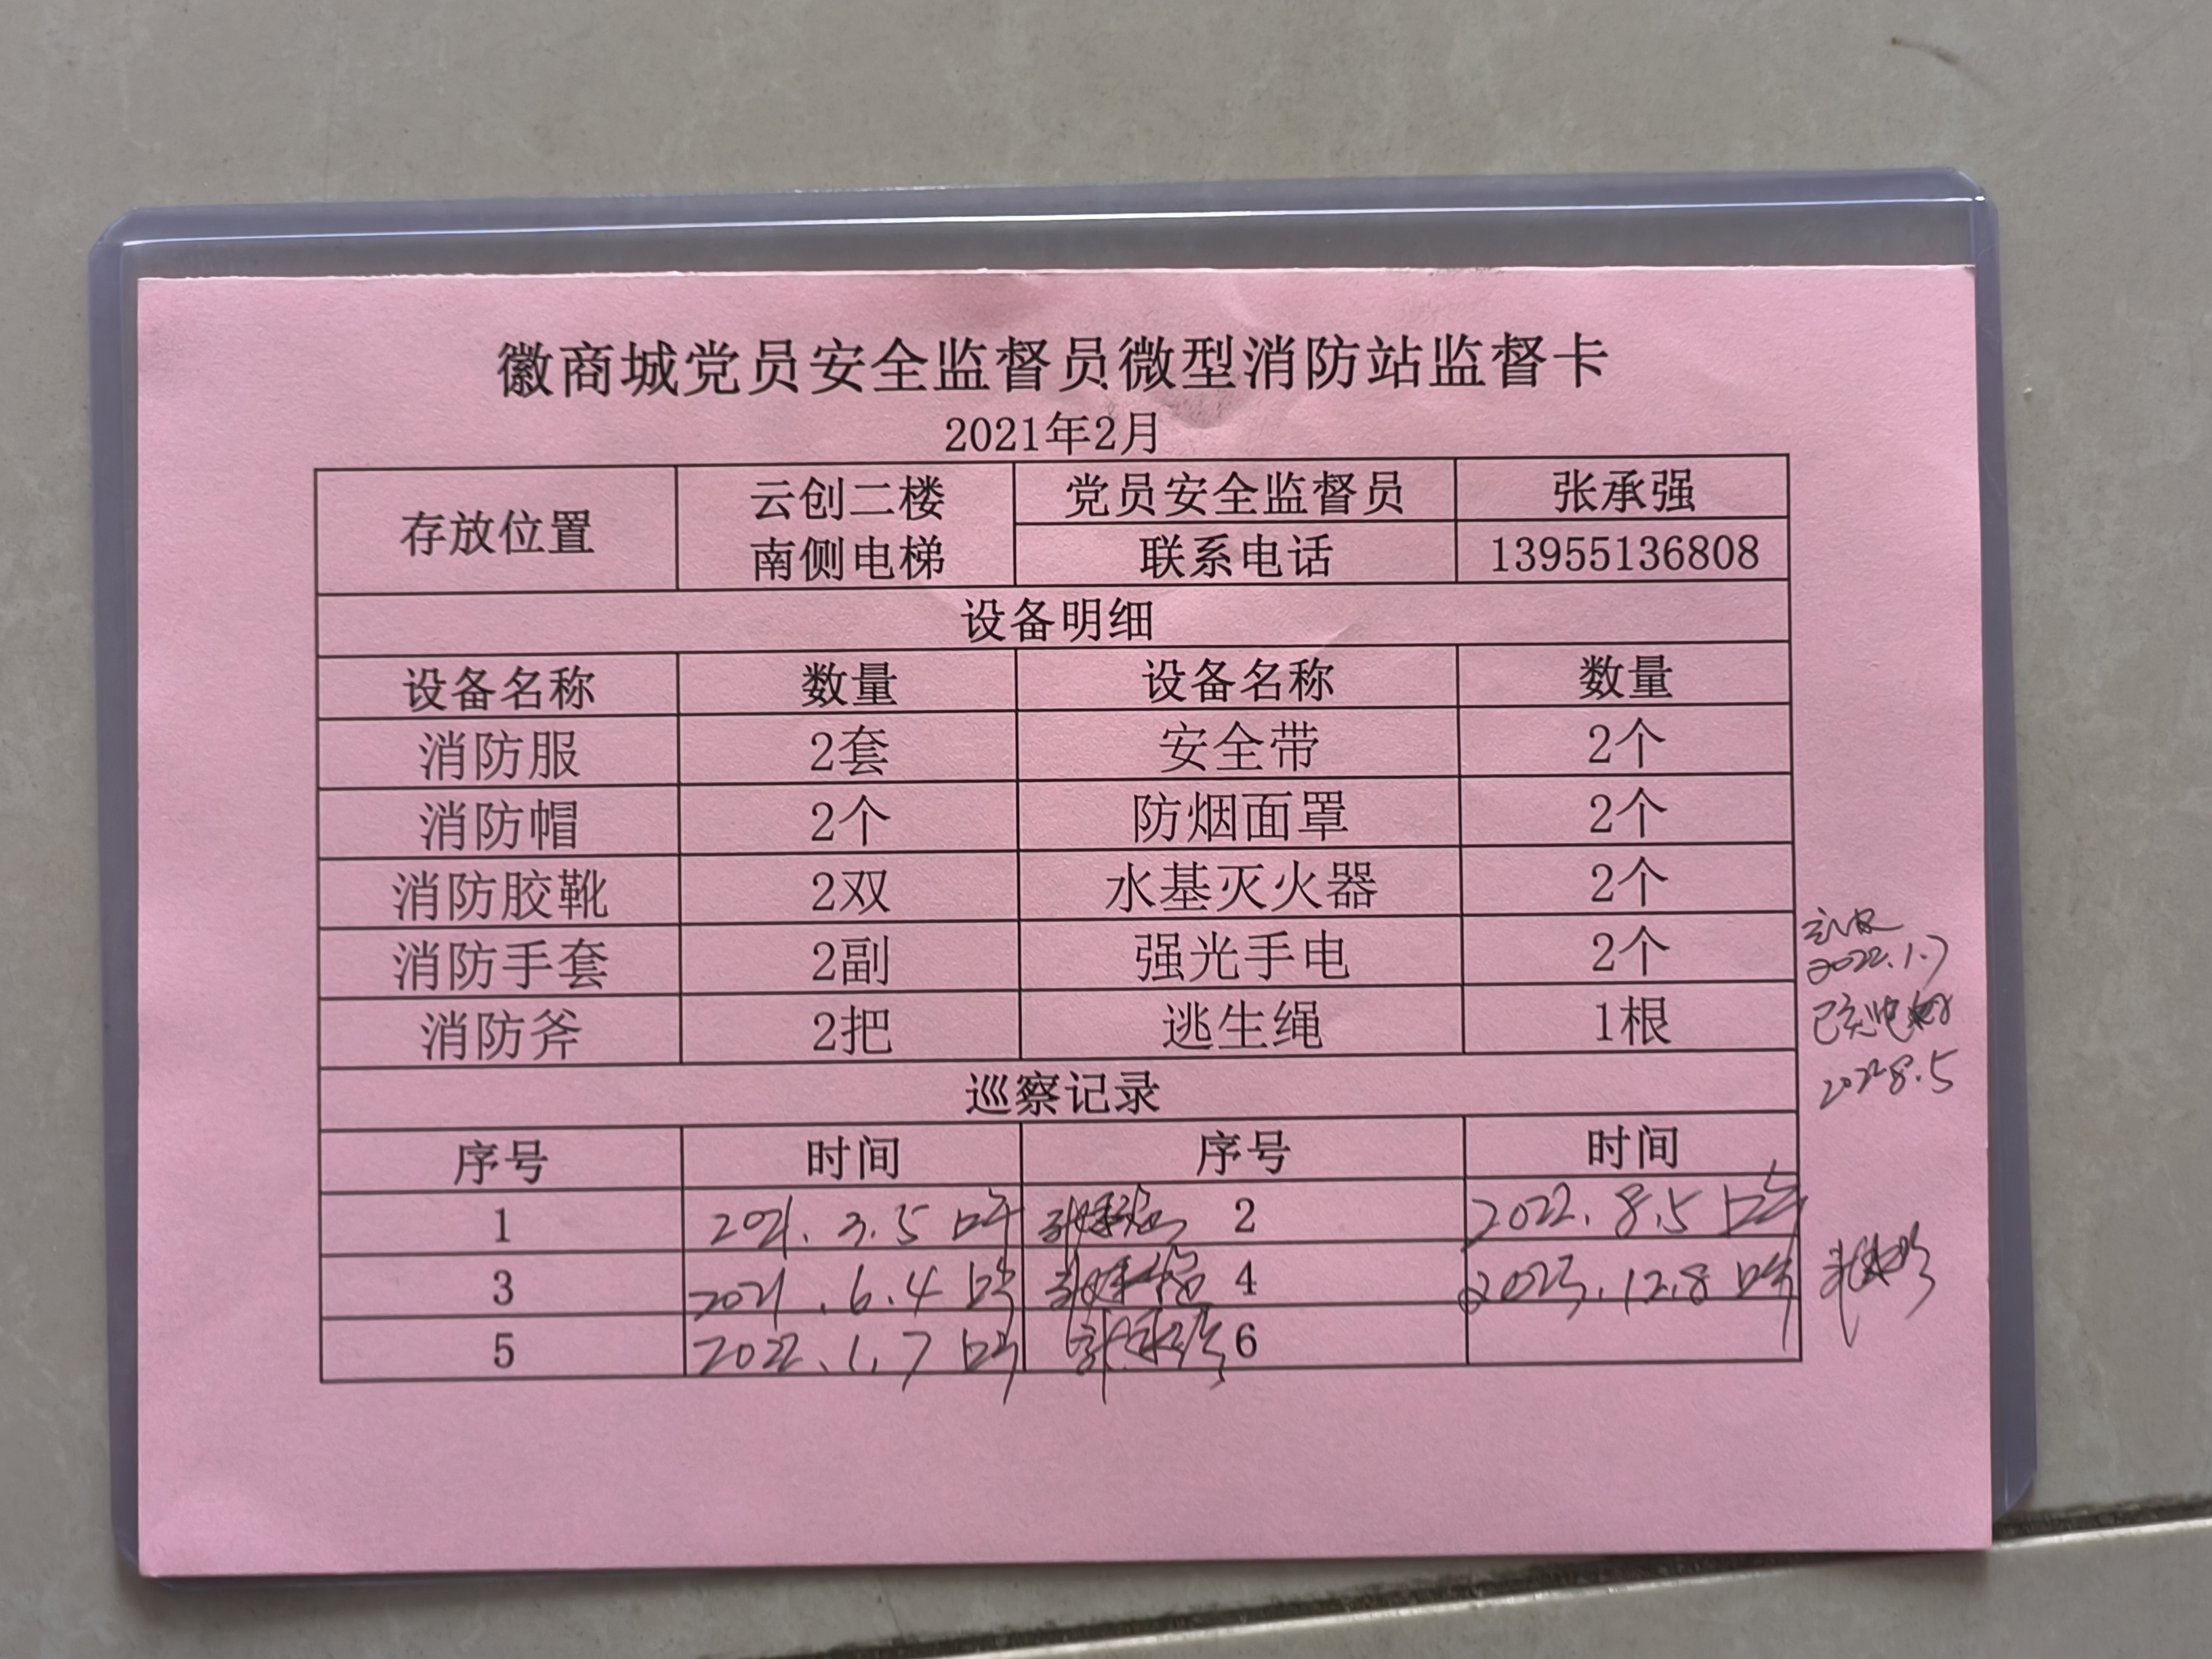 徽商城党员安全监督员微型消防站监督卡
2021年2月
存放位置 云创二楼南侧电梯 党员安全监督员 张承强
联系电话 13955136808
设备明细
设备名称 数量 设备名称 数量
消防服 2套 安全带 2个
消防帽 2个 防烟面罩 2个
消防胶靴 2双 水基灭火器 2个
消防手套 2副 强光手电 2个
消防斧 2把 逃生绳 1根
2022.1.7
已充电
2022 8.5
巡察记录
序号 时间 序号 时间
1 2021.3.5 2 2022.8.5
3 2021.6.4 4 2023.12.8
5 2022.1.7 6